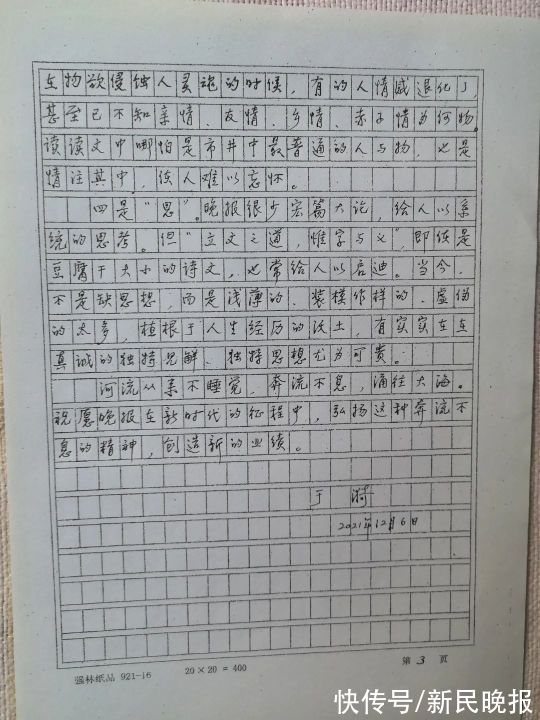 在物欲侵蚀人灵魂的时候，有的人情感退化了
甚至已不知亲情、友情、乡情、赤子情为何物。
读读文中哪怕是市井中最普通的人与物，也是
情注其中，使人难以忘怀。
四是“思”。晚报很少宏篇大论，给人以系
统的思考。但“立文之道，惟字与义”，即使是
豆腐干大小的诗文，也常给人以启迪。当今，
不是缺思想，而是浅薄的、装模作样的、虚伪
的太多，植根于人生经历的沃土，有实实在在
真诚的独特见解、独特思想尤为可贵。
河流从来不睡觉，奔流不息，涌往大海。
祝愿晚报在新时代的征程中，弘扬这种奔流不
息的精神，创造新的业绩。
于漪
2021年12月6日
强林纸品 921-16
20×20=400
第 3 页
快传号/新民晚报